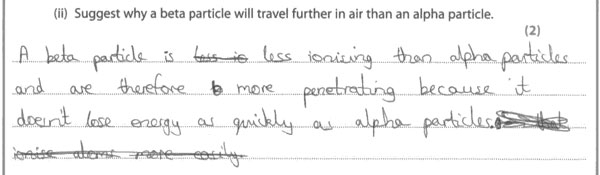 (ii) Suggest why a beta particle will travel further in air than an alpha particle.
(2)
A beta particle is less is less ionising than alpha particles
and are therefore b more penetrating because it
doesn't lose energy as quickly as alpha particles.
ionise atoms more easily